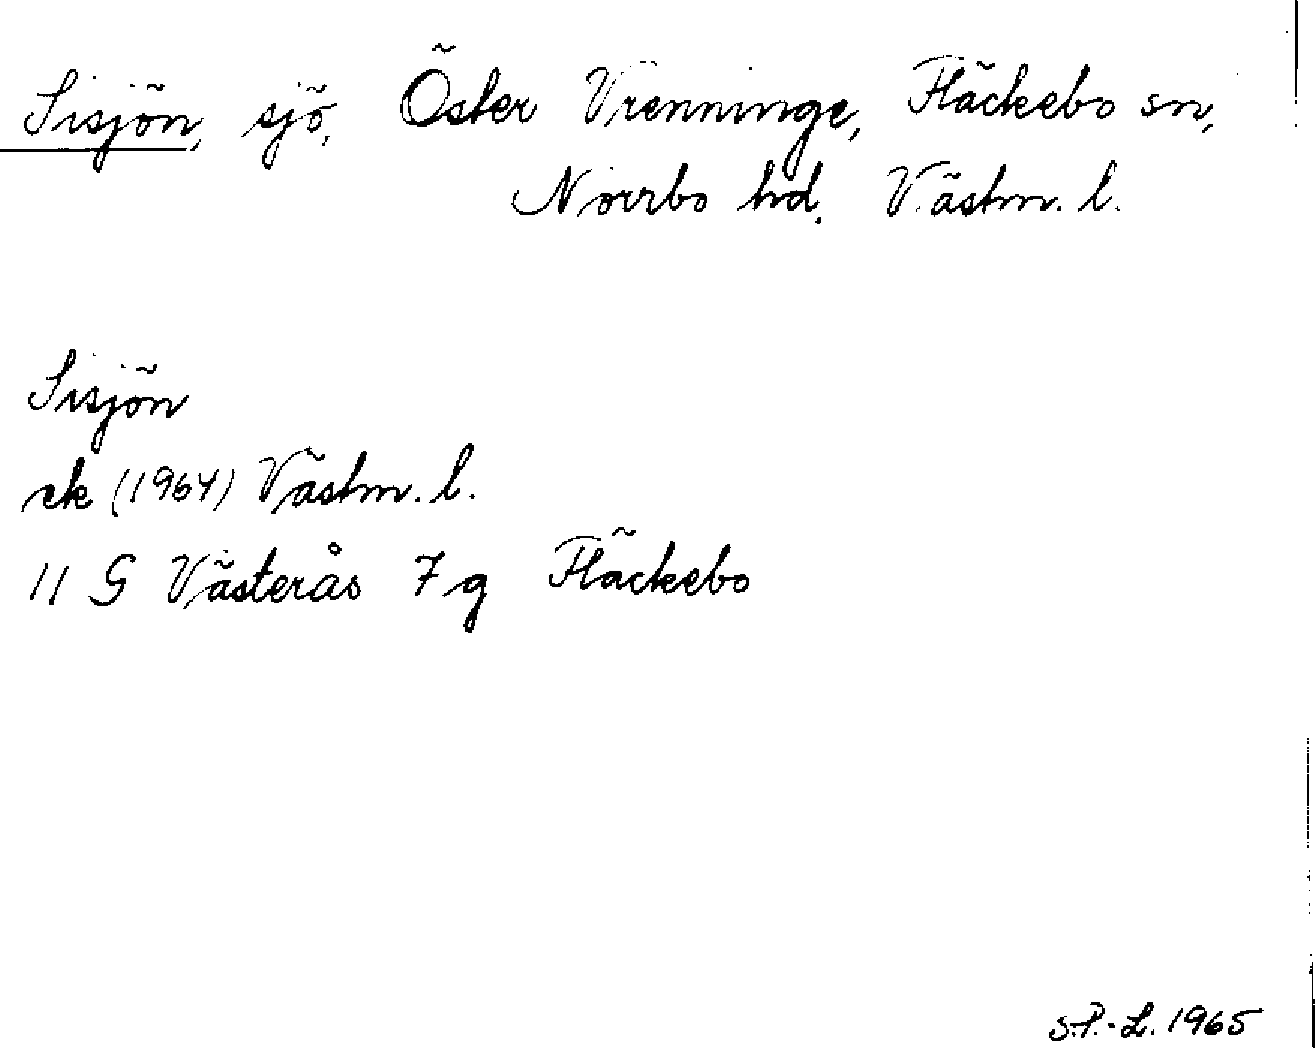 Sisjön, sjö, Öster Vrenninge, Fläckebo sn,
Norrbo hd. Västm. l.
Sisjön
ek (1964) Västm. l.
11 G Västerås 7 g Fläckebo
S.P.-L. 1965